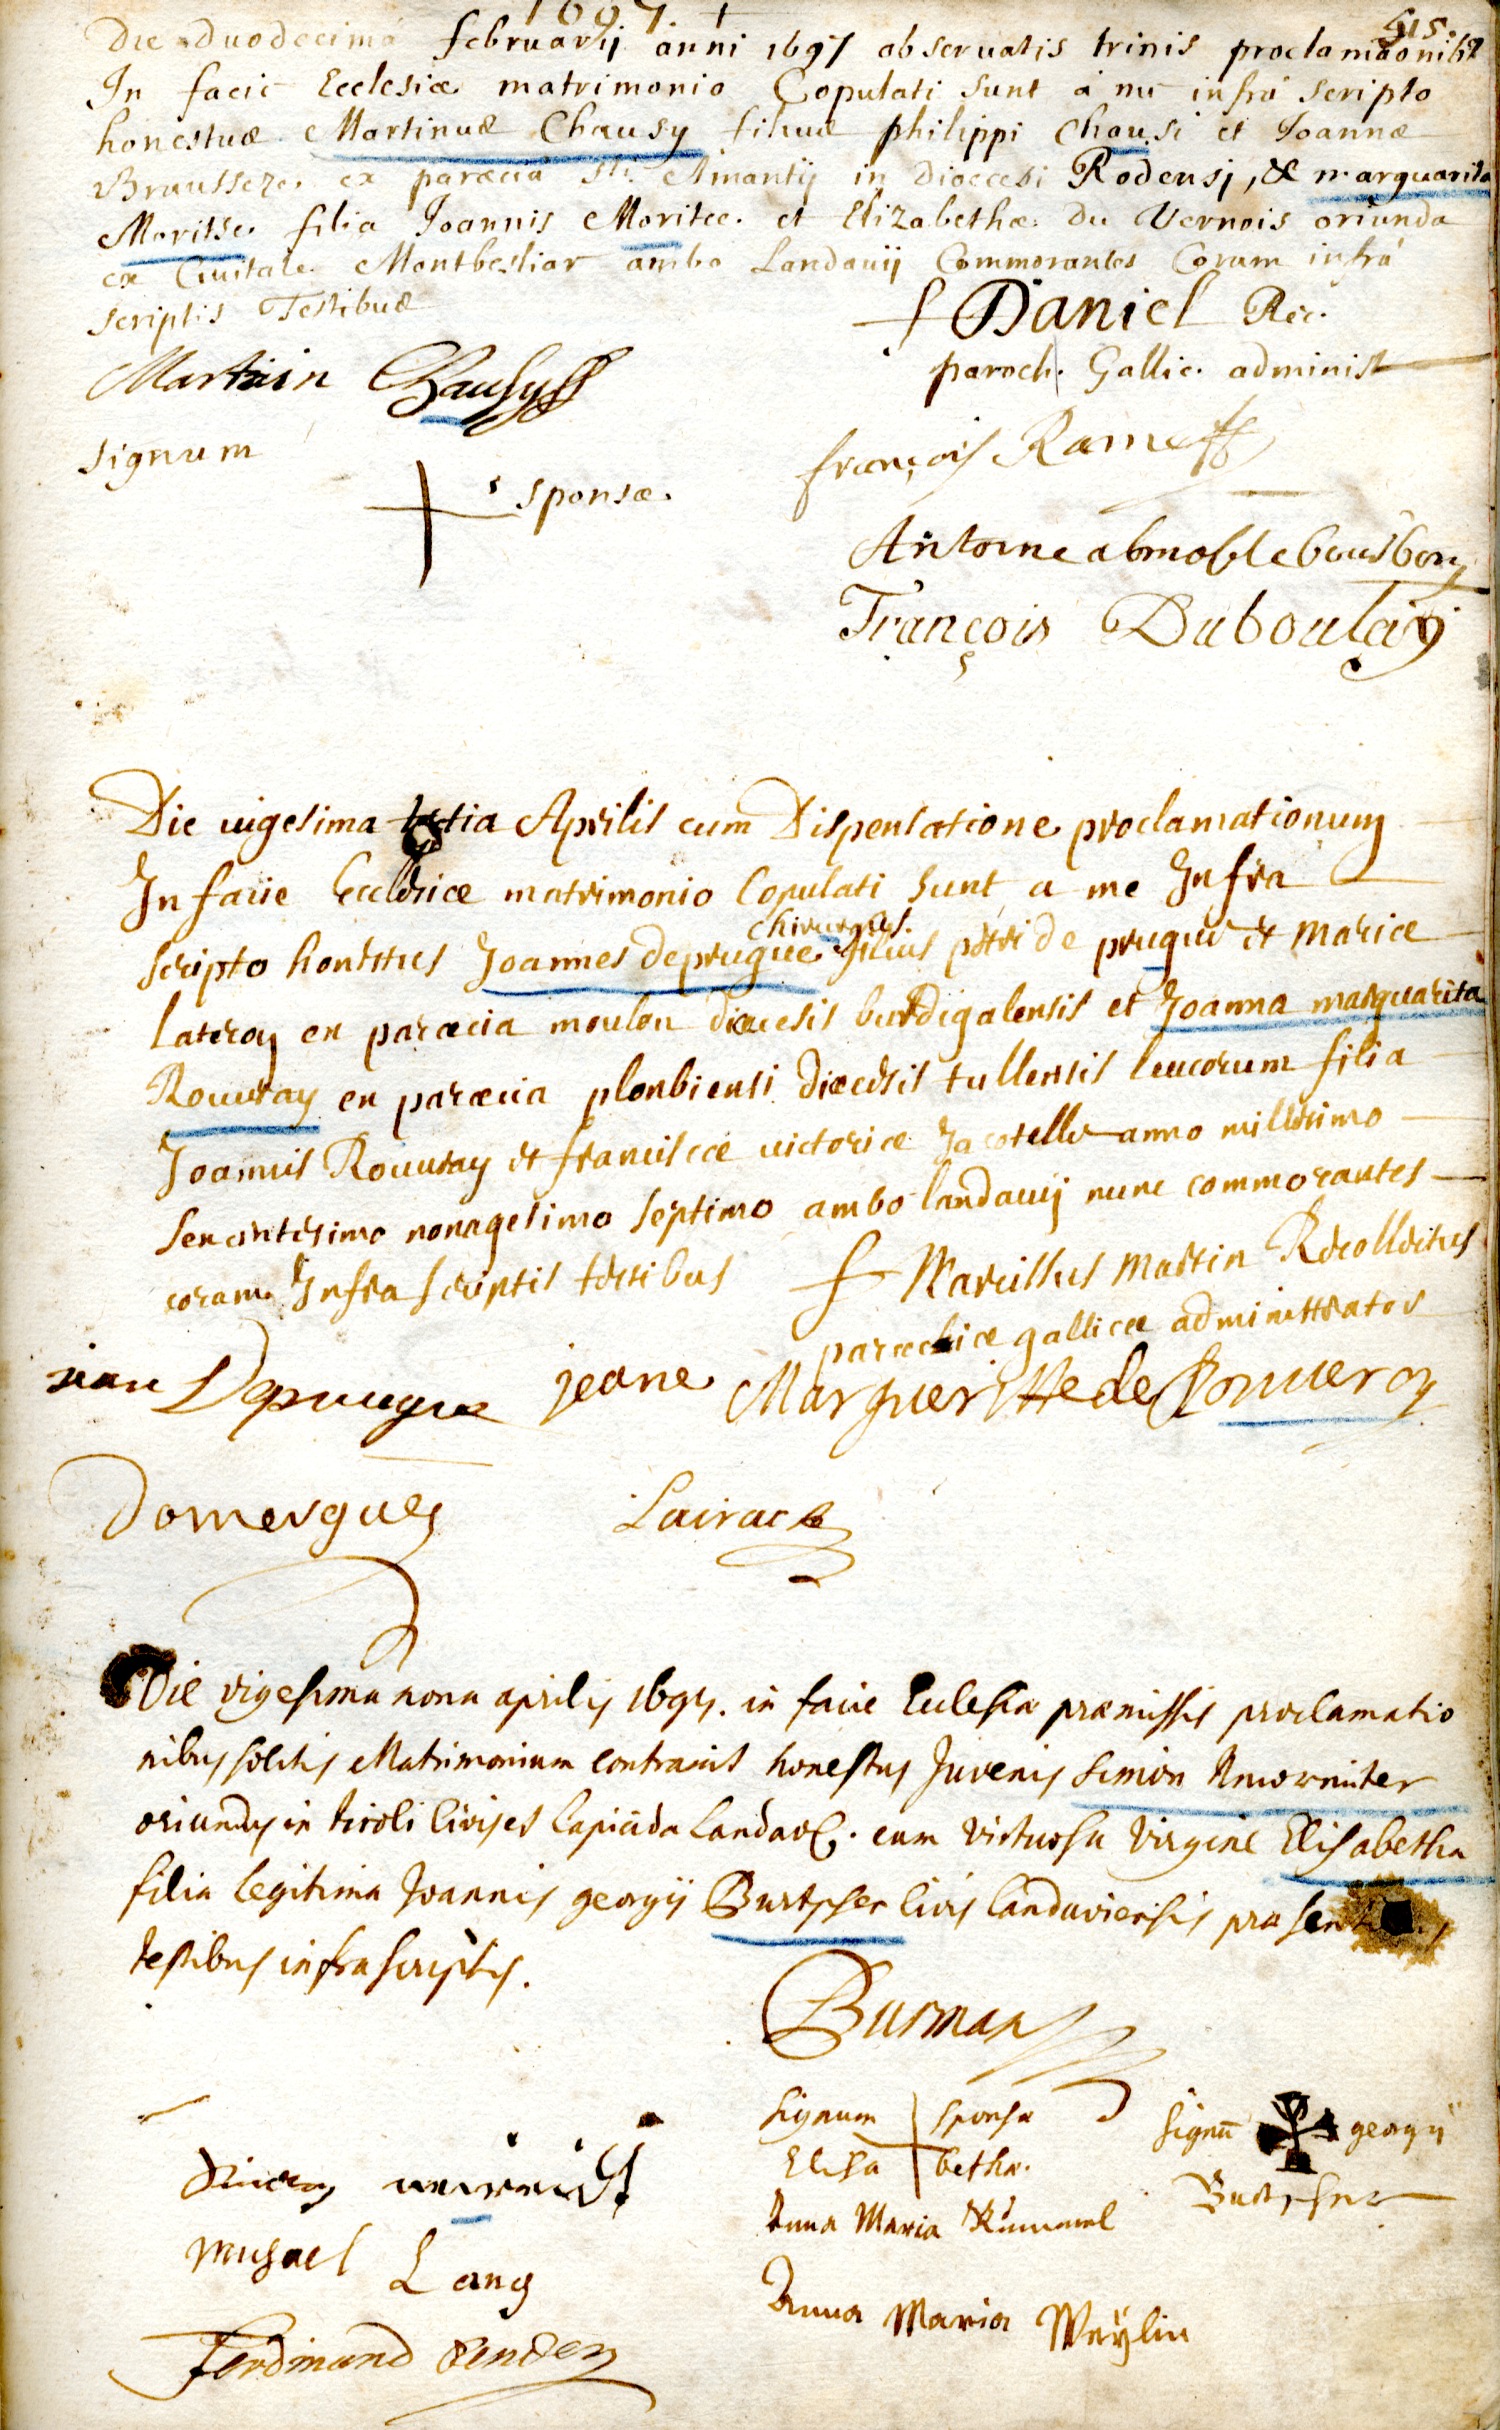 1697. +
415.
Die duodecima februarij anni 1697 observatis trinis proclamaonibs
In facie Ecclesiæ matrimonio Copulati sunt á me infrá scripto
honestus Martinus Chausy filius philippi Chausi et Joannæ
Brausseze. ex paræciá Sti. Amantij in Dioecesi Rodensj, & marguarita
Moritse. filia Joannis Moritee. et Elizabethæ. Du Vernois oriunda
ex Civitate Montbeliar ambo Landavij Commorantes Coram infrá
scriptis Testibus
f Daniel Rec.
paroch. Gallic. administ
Martin Chausy
signum + sponsæ.
françois Rame
Antoine
François Duboulay
Die vigesima tertia Aprilis cum Dispensatione proclamationum
In facie Ecclesiæ matrimonio Copulati sunt a me Infra
chirurgus.
scripto honestus Joannes deprugue filius petri de prugue et Mariæ
Lateroy ex paræcia moulon diæcesis burdigalensis et Joanna marguarita
Rouvray ex paræcia plonbiensi diæcesis tullensis leucorum filia
Joannis Rouvray et francisce victoriæ Jacotelle anno millesimo
sexcentesimo nonagesimo septimo ambo landavij nunc commorantes
coram Infra scriptis testibus f Marcillus Martin Recollectus
parochiæ gallicæ administrator
jean Deprugue jeane Margueritte de Rouueroy
Domergues Lairac
Die vigesima nona aprilis 1697. in facie Ecclesiæ præmissis proclamatio
nibus solitis Matrimonium contraxit honestus Juvenis Simon
oriundus in tiroli Civis et Lapicida Landav. cum virtuosa virgine Elisabetha
filia legitima Joannis georgij Burtscher Civis Landaviensis præsen
testibus infrascriptis.
Busman
signum + sponsæ
Elisa betha.
signū georgij
Burtscher
Anna Maria
Michael Lang
Anna Maria Weÿlin
Ferdinand